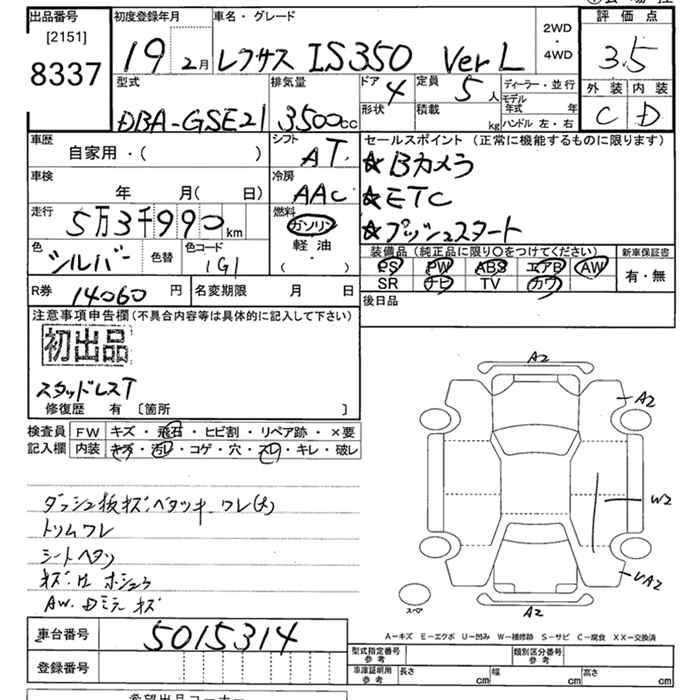 出品番号
[2151]
8337
初度登録年月
19 2月
車名・グレード
レクサス IS350 Ver L
2WD
4WD
評価点
3.5
外装 内装
C D
型式
DBA-GSE21
排気量
3500cc
ドア 4
形状
定員 5人
積載 kg
ディーラー・並行
モデル年式 年
ハンドル 左・右
車歴
自家用・( )
シフト
AT
車検
年 月( 日)
冷房
AAC
走行
5万3千990km
燃料
ガソリン
軽油
( ・ )
色
シルバー
色替
色コード
1G1
セールスポイント (正常に機能するものに限ります)
☆Bカメラ
☆ETC
☆プッシュスタート
装備品(純正品に限り○をつけてください)
PS PW ABS エアB AW
SR ナビ TV カワ
新車保証書
有・無
R券 14060円
名変期限 月 日
後日品
注意事項申告欄(不具合内容等は具体的に記入して下さい)
初出品
スタッドレスT
修復歴 有 〔箇所 〕
検査員
記入欄
FW キズ・飛石・ヒビ割・リペア跡・×要
内装 キズ・汚レ・コゲ・穴・スレ・キレ・破レ
ダッシュ板キズ・ベタツキ ワレ(大)
トリムワレ
シートヘタリ
AW. Dミラー キズ
A2
A2
W2
A2
A2
スペア
A−キズ E−エクボ U−凹み W−補修跡 S−サビ C−腐食 XX−交換済
車台番号
5015314
登録番号
型式指定番号
参考
類別区分番号
参考
車庫証明用
参考
長さ cm
幅 cm
高さ cm
希望出品コーナー